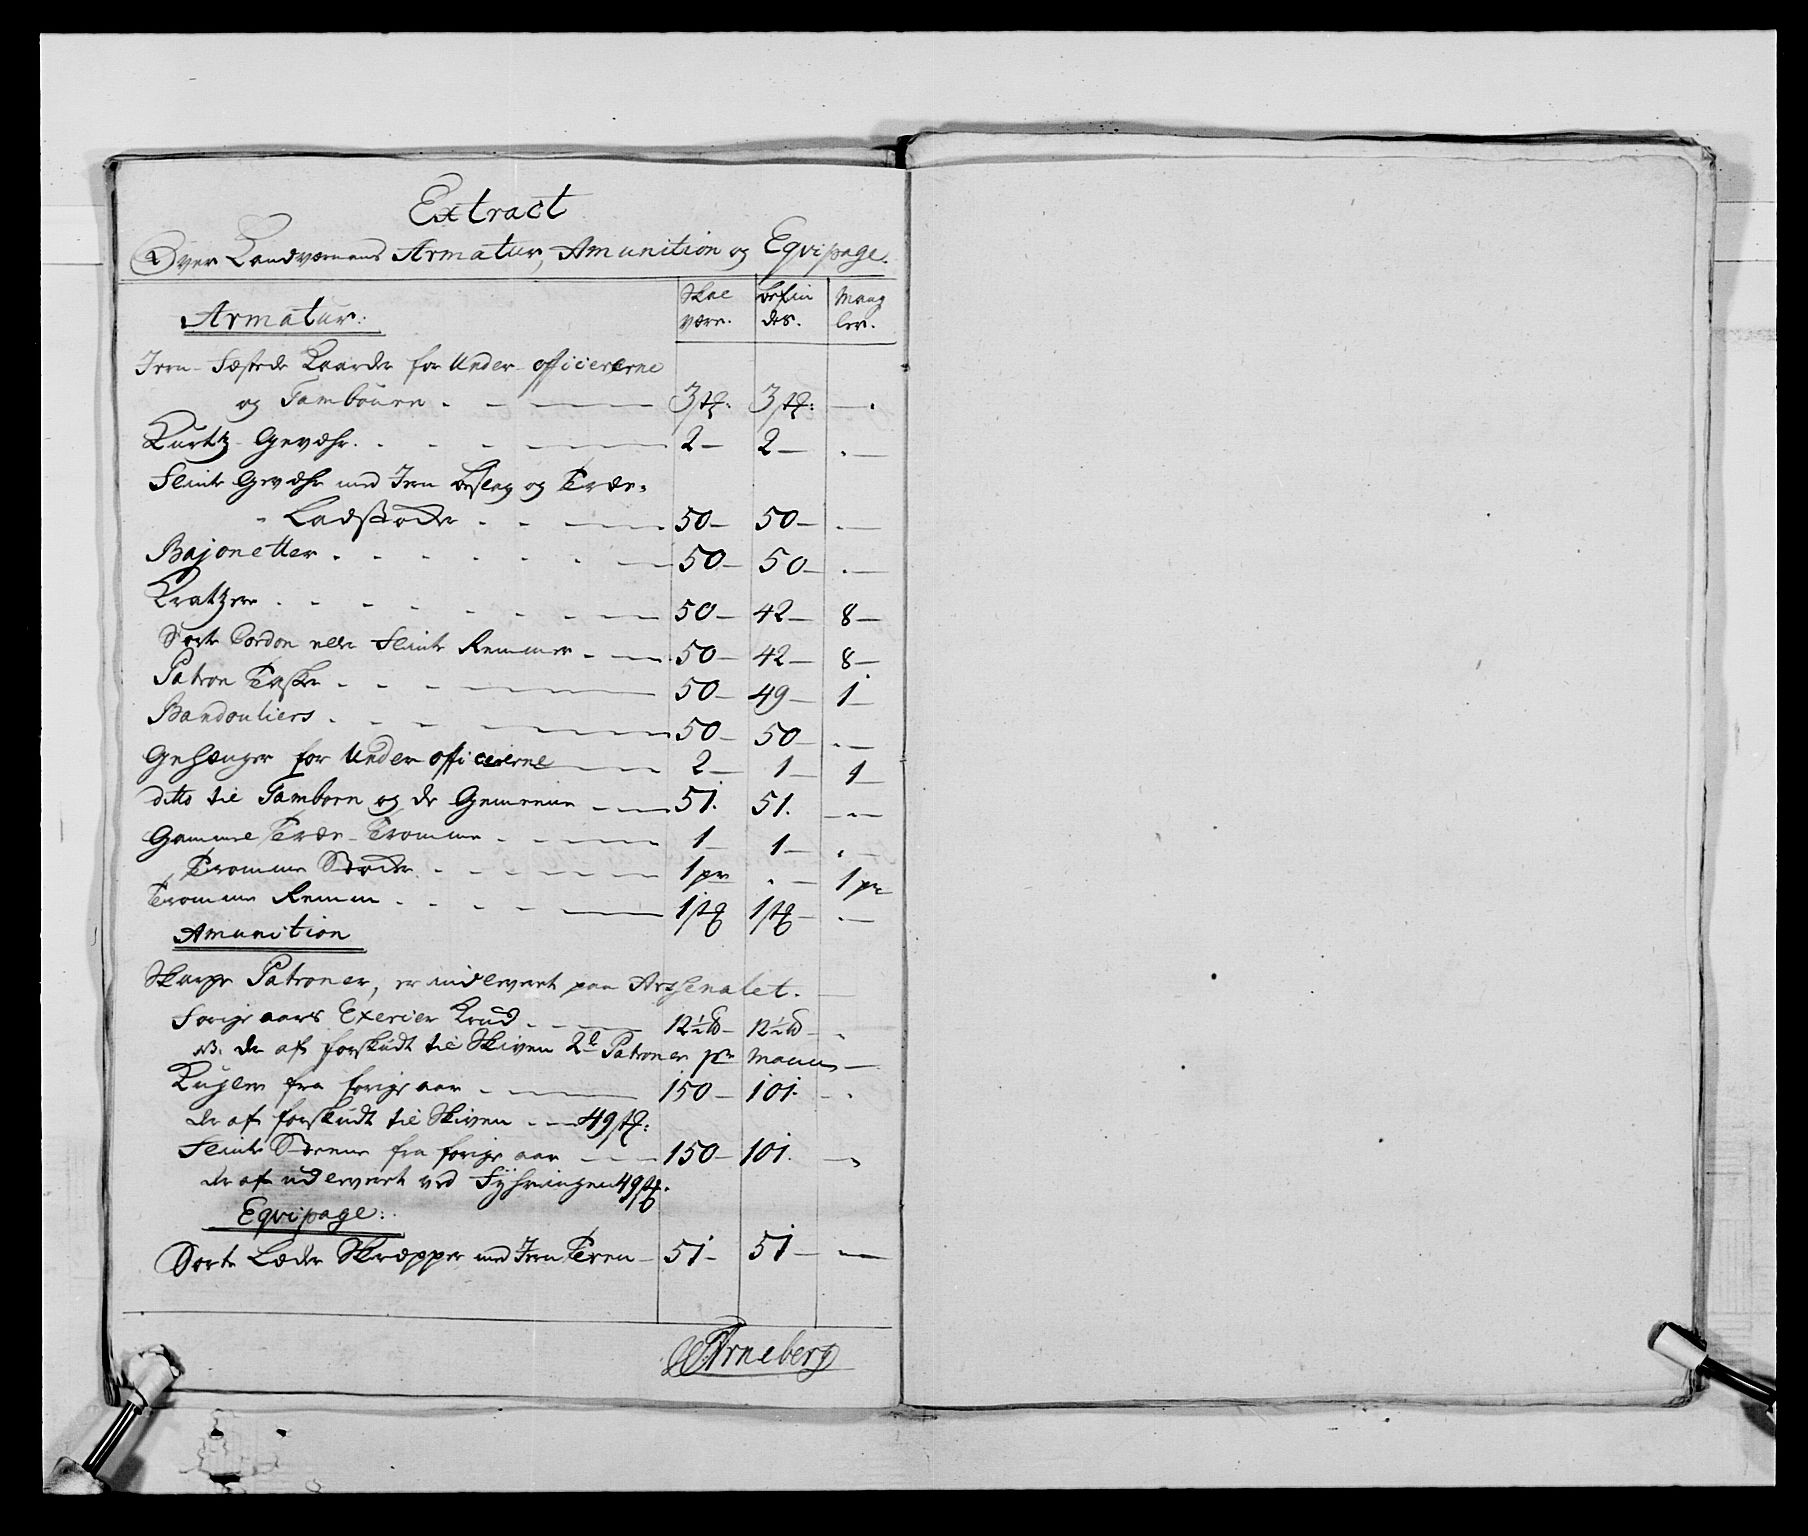 Extract
Over Landværnens Armatur, Amunition og Eqvipage.
Armatur: Skal være. befindes. Mangler.
Jern-Fæstede Kaarder for Under-officiererne
og Tambouren . - — — 3 stk: 3 stk: —.
Kurtz-Gevæhr. . . - — 2— 2— . —
Flinte Gevæhr med Jern beslag og Træe-
- Ladstokke . - — 50— 50— . —
Bajonetter . - - - - . — 50— 50— . —
Kratzere . - - - - - — 50— 42— 8—
Sorte Cordon eller Flinte Remmer - — 50— 42— 8—
Patron Tasker . - - — 50— 49— 1—
Bandouliers . - - — 50— 50— . —
Gehænger for Under officiererne — 2— 1— 1—
ditto til Tamborn og de Gemeene - — 51. 51. — —
Gammel Træe-Tromme . - — 1— 1— . —
Tromme Stokke . - - - — 1 pr . — 1 pr
Tromme Remm . - - - — 1 stk 1 stk— . —
Amunition
Skarpe Patroner, er indleveret paa Arsenalet. —
Forige aars Exercier Krud - - — 12½ ℔— 12½ ℔— .
NB. der af forskudt til Skiven 2de Patroner pr Mann —
Kugler fra forige aar - — 150— 101. - .
der af forskudt til Skiven - — 49 stk:
Flinte Steene fra forige aar — — 150— 101. —
der af udleveret ved Fyhringen 49 stk.
Eqvipage:
Sorte Læder Skræpper med Jern Teen — 51— 51— —
Arneberg